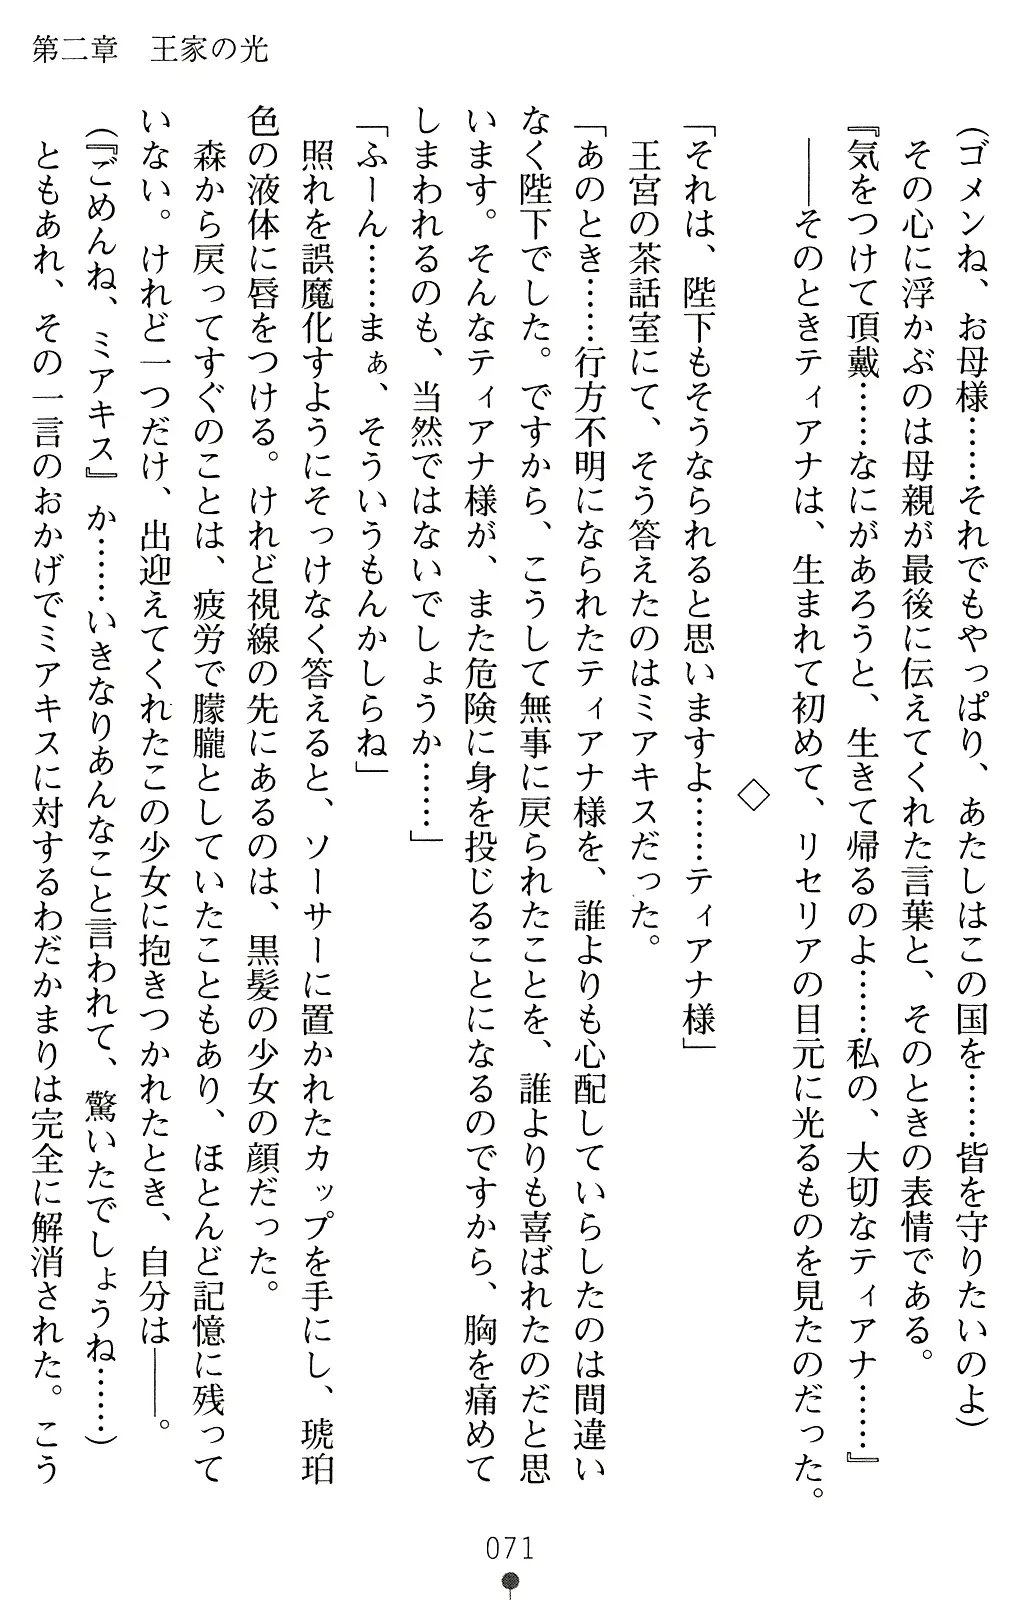 第二章　王家の光
（ゴメンね、お母様……それでもやっぱり、あたしはこの国を……皆を守りたいのよ）
　その心に浮かぶのは母親が最後に伝えてくれた言葉と、そのときの表情である。
『気をつけて頂戴……なにがあろうと、生きて帰るのよ……私の、大切なティアナ……』
　――そのときティアナは、生まれて初めて、リセリアの目元に光るものを見たのだった。
◇
「それは、陛下もそうなられると思いますよ……ティアナ様」
　王宮の茶話室にて、そう答えたのはミアキスだった。
「あのとき……行方不明になられたティアナ様を、誰よりも心配していらしたのは間違い
なく陛下でした。ですから、こうして無事に戻られたことを、誰よりも喜ばれたのだと思
います。そんなティアナ様が、また危険に身を投じることになるのですから、胸を痛めて
しまわれるのも、当然ではないでしょうか……」
「ふーん……まぁ、そういうもんかしらね」
　照れを誤魔化すようにそっけなく答えると、ソーサーに置かれたカップを手にし、琥珀
色の液体に唇をつける。けれど視線の先にあるのは、黒髪の少女の顔だった。
　森から戻ってすぐのことは、疲労で朦朧としていたこともあり、ほとんど記憶に残って
いない。けれど一つだけ、出迎えてくれたこの少女に抱きつかれたとき、自分は――。
（『ごめんね、ミアキス』か……いきなりあんなこと言われて、驚いたでしょうね……）
　ともあれ、その一言のおかげでミアキスに対するわだかまりは完全に解消された。こう
071